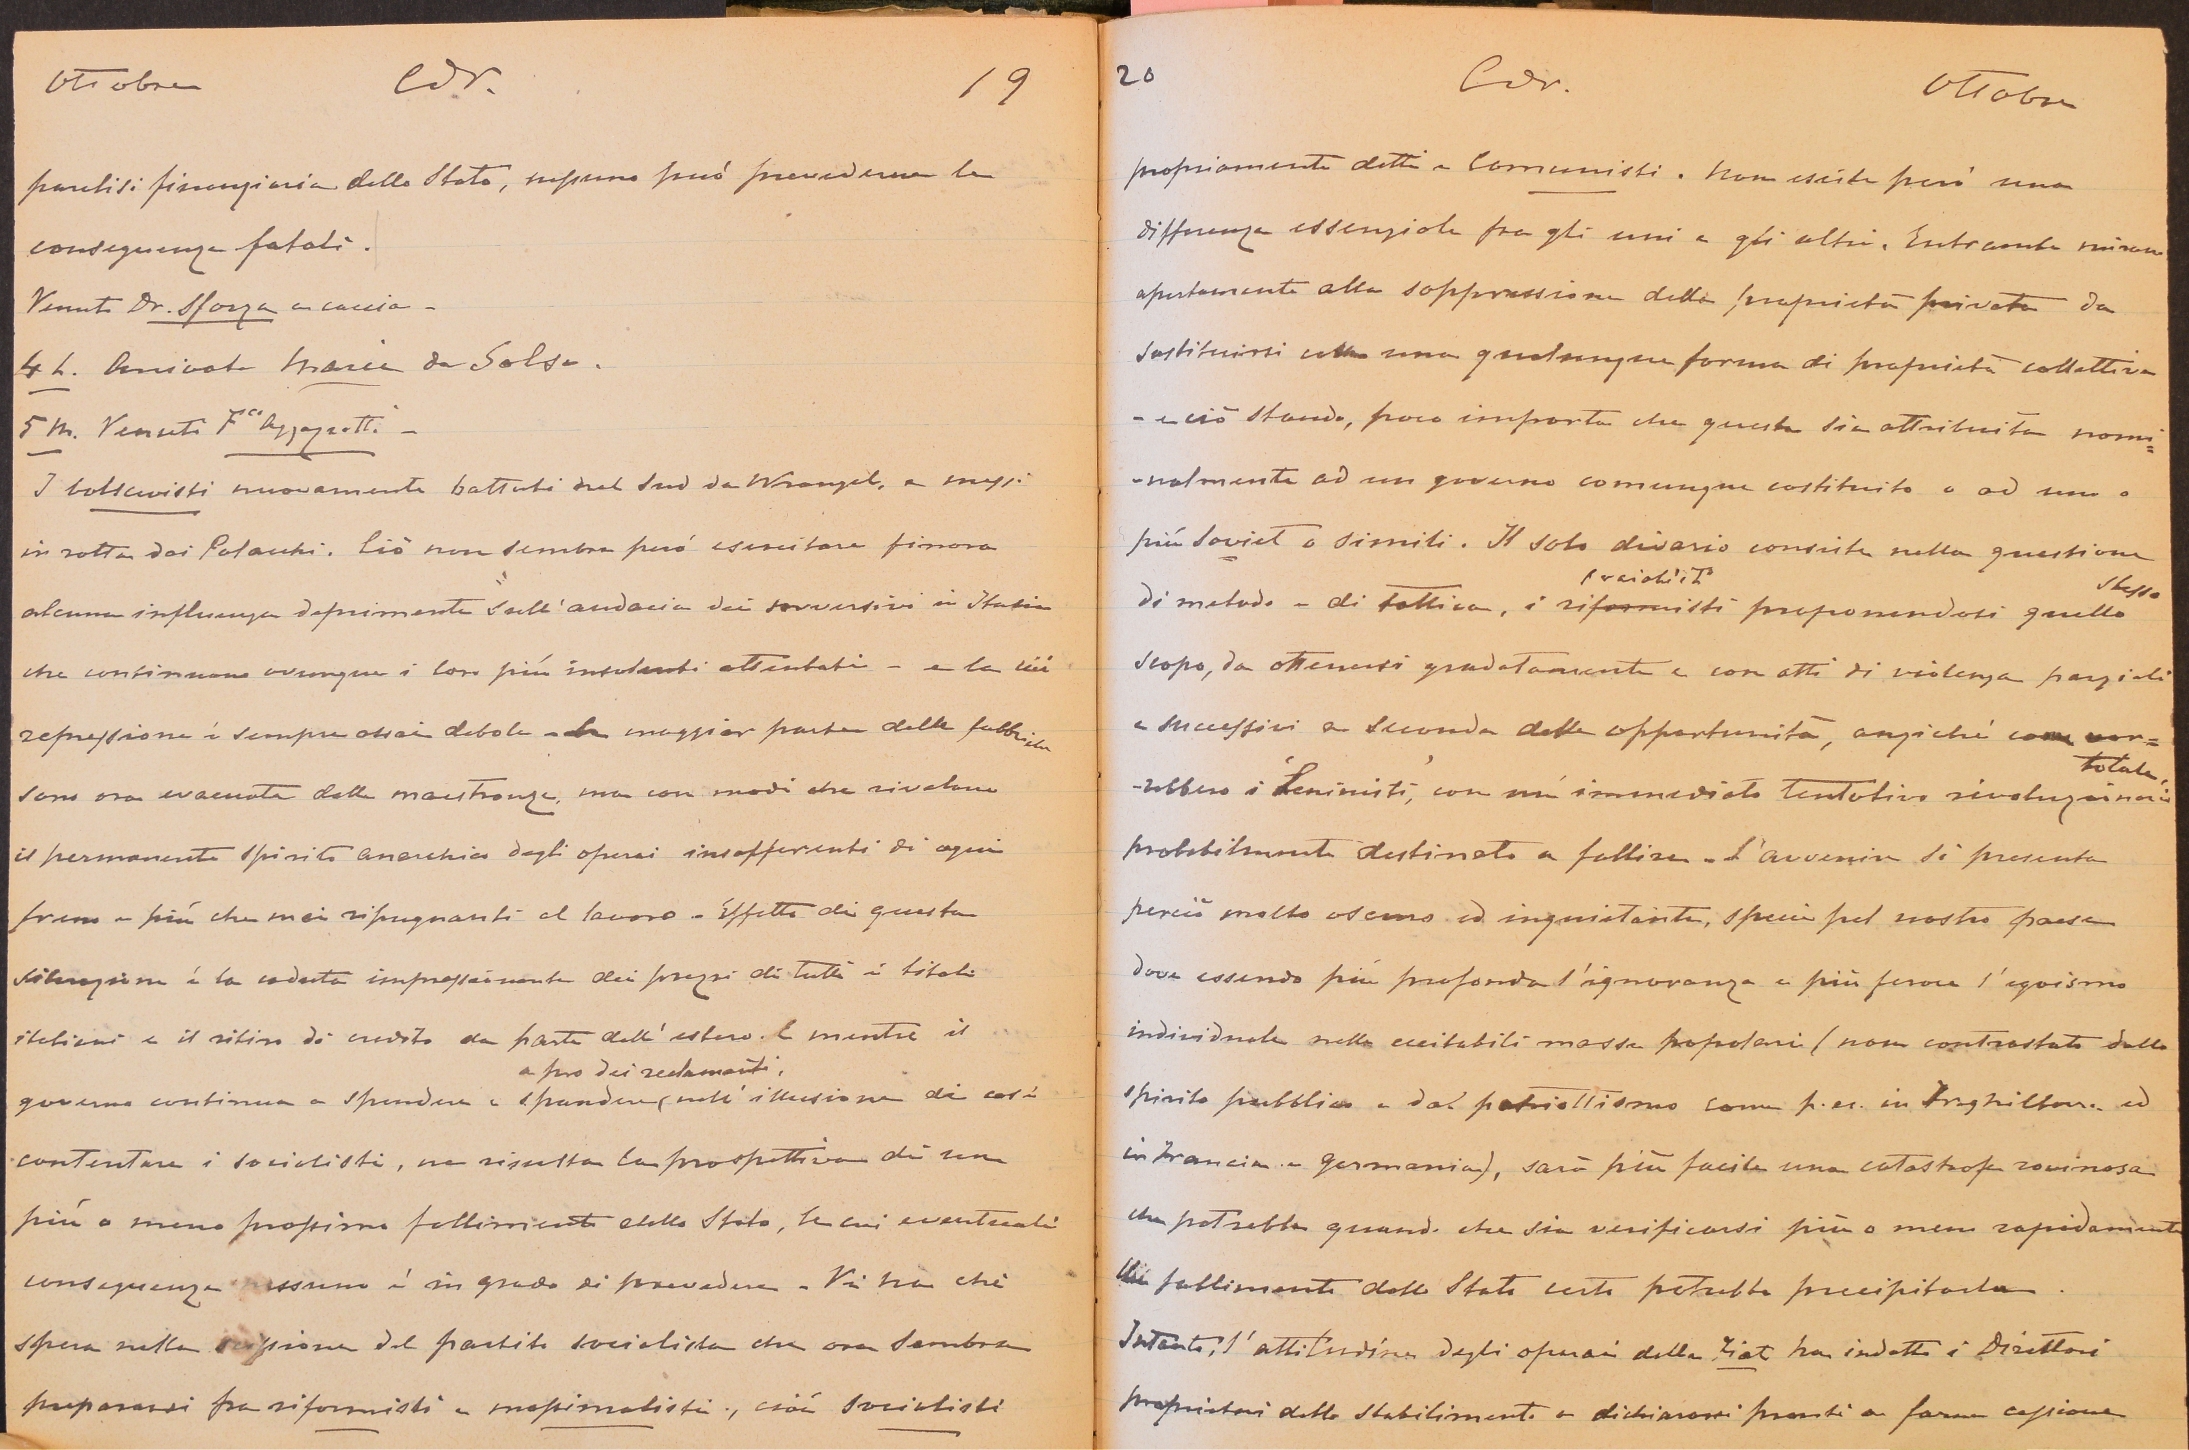 Ottobre Cdr. 19
paralisi finanziaria dello Stato, nessuno può prevederne le
conseguenze fatali.
Venuto Dr. Sforza a caccia -
4 L. Arrivata Maria da Salso.
5 M. Venuto F.co Aggazzotti -
I bolscevisti nuovamente battuti nel Sud da Wrangel, e messi
in rotta dai Polacchi. Ciò non sembra però esercitare finora
alcuna influenza deprimente sull'audacia dei sovversivi in Italia
che continuano ovunque i loro più insolenti attentati - e la cui
repressione è sempre assai debole - la maggior parte delle fabbriche
sono ora evacuate dalle maestranze, ma con modi che rivelano
il permanente spirito anarchico degli operai insofferenti di ogni
freno e più che mai ripugnanti al lavoro - Effetto di questa
situazione è la caduta impressionante dei prezzi di tutti i titoli
italiani e il ritiro di credito da parte dell'estero. E mentre il
a pro dei reclamanti,
governo continua a spendere e spandere (nell'illusione di così
contentare i socialisti, ne risulta la prospettiva di un
più o meno prossimo fallimento dello Stato, le cui eventuali
conseguenze nessuno è in grado di prevedere - Vi ha chi
spera nella scissione del partito socialista che ora sembra
prepararsi fra riformisti e massimalisti, cioè socialisti
20 Cdr. Ottobre
propriamente detti e Comunisti. Non esiste però una
differenza essenziale fra gli uni e gli altri. Entrambi mirano
apertamente alla soppressione della proprietà privata da
sostituirsi con una qualunque forma di proprietà collettiva
- e ciò stando, poco importa che questa sia attribuita nomi=
-nalmente ad un governo comunque costituito o ad uno o
più Soviet o simili. Il solo divario consiste nella questione
socialisti stesso
di metodo e di tattica, i riformisti proponendosi quello
scopo, da ottenersi gradatamente e con atti di violenza parziali
e successivi a seconda delle opportunità, anziché come vor=
totale,
-rebbero i "Leninisti", con un immediato tentativo rivoluzionario
probabilmente destinato a fallire - L'avvenire si presenta
perciò molto oscuro ed inquietante, specie pel nostro paese
dove essendo più profonda l'ignoranza e più feroce l'egoismo
individuale nelle eccitabili masse popolari (non contrastato dallo
spirito pubblico e dal patriottismo come p. es. in Inghilterra ed
in Francia e Germania), sarà più facile una catastrofe rovinosa
che potrebbe quando che sia verificarsi più o meno rapidamente
Un fallimento dello Stato certo potrebbe precipitarla.
Intanto, l'attitudine degli operai della Fiat ha indotto i Direttori
proprietari dello stabilimento a dichiararsi pronti a farne cessione